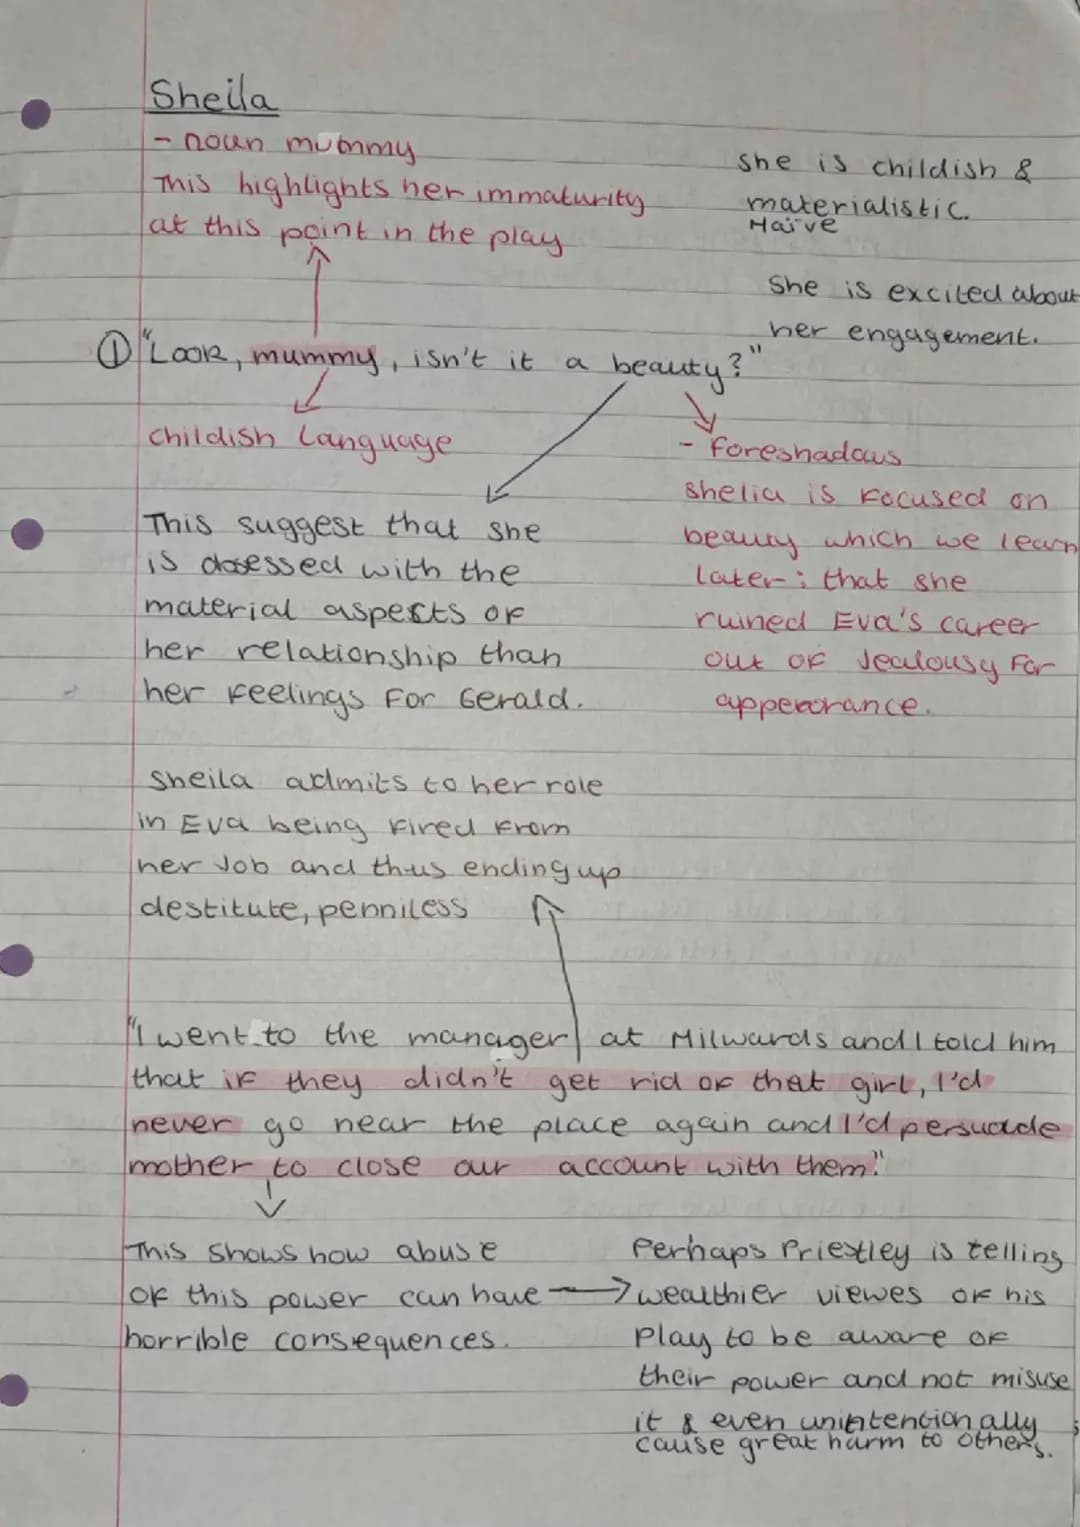 Sheila
- noun mummy
This highlights her immaturity
at this point in the play
she is childish &
materialistic.
Naïve
She is excited about
her engagement.
① "Look, mummy, isn't it a beauty?"
Childish Language
This suggest that she
is obsessed with the
material aspects of
her relationship than
her feelings for Gerald.
- foreshadows
Shelia is focused on
beauty which we learn
later; that she
ruined Eva's career
out of Jealousy for
apperarance.
Sheila admits to her role
in Eva being fired from
her Job and thus ending up
destitute, penniless
"I went to the manager at Milwards and I told him
that if they didn't get rid of that girl, I'd
never go near the place again and I'd persuade
mother to close our account with them."
This shows how abuse
of this power can have
horrible consequences.
Perhaps Priestley is telling
wealthier viewes of his
Play to be aware of
their power and not misuse
it & even unintentionally
cause great harm to others.